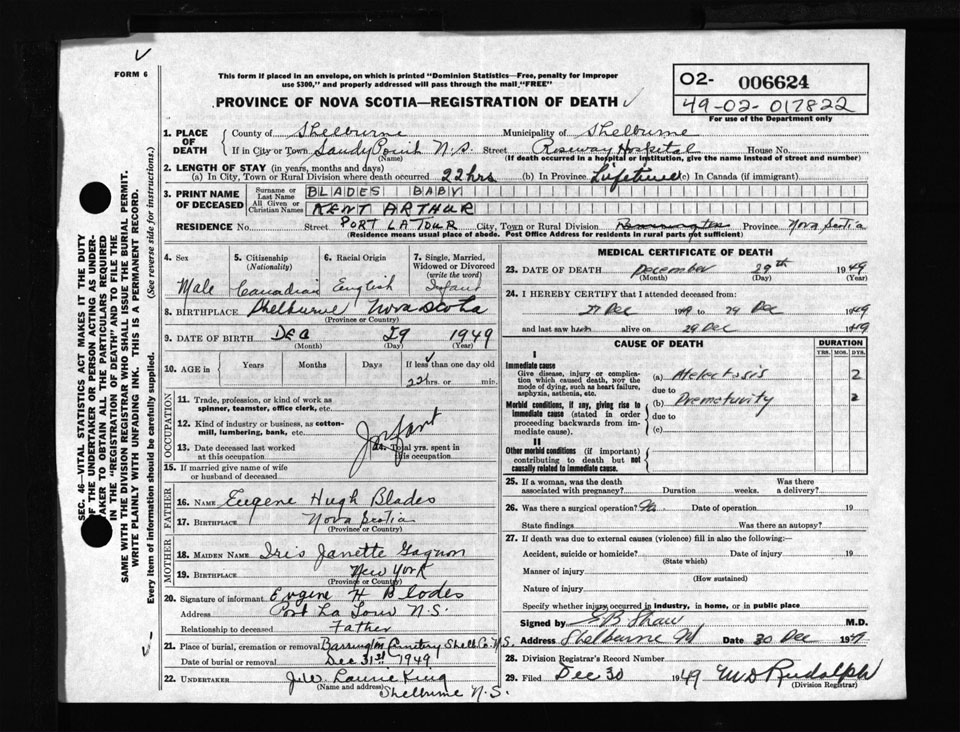 FORM 6
This form if placed in an envelope, on which is printed "Dominion Statistics—Free, penalty for improper
use $300," and properly addressed will pass through the mail "FREE"
PROVINCE OF NOVA SCOTIA—REGISTRATION OF DEATH
02- 006624
49-02-017822
For use of the Department only
SEC. 46—VITAL STATISTICS ACT MAKES IT THE DUTY
OF THE UNDERTAKER OR PERSON ACTING AS UNDER-
TAKER TO OBTAIN ALL THE PARTICULARS REQUIRED
IN THE "REGISTRATION OF DEATH" AND TO FILE THE
SAME WITH THE DIVISION REGISTRAR WHO SHALL ISSUE THE BURIAL PERMIT.
WRITE PLAINLY WITH UNFADING INK. THIS IS A PERMANENT RECORD.
Every item of information should be carefully supplied. (See reverse side for instructions.)
1. PLACE OF DEATH County of Shelburne Municipality of Shelburne
If in City or Town Sandy Point N.S. Street Roseway Hospital House No.
(Name) (If death occurred in a hospital or institution, give the name instead of street and number)
2. LENGTH OF STAY (in years, months and days)
(a) In City, Town or Rural Division where death occurred 22 hrs (b) In Province Lifetime (c) In Canada (if immigrant)
3. PRINT NAME OF DECEASED Surname or Last Name BLADES BABY
All Given or Christian Names KENT ARTHUR
RESIDENCE No. Street PORT LA TOUR City, Town or Rural Division Barrington Province Nova Scotia
(Residence means usual place of abode. Post Office Address for residents in rural parts not sufficient)
4. Sex Male
5. Citizenship (Nationality) Canadian
6. Racial Origin English
7. Single, Married, Widowed or Divorced (write the word) Infant
8. BIRTHPLACE Shelburne Nova Scotia
(Province or Country)
9. DATE OF BIRTH Dec 29 1949
(Month) (Day) (Year)
10. AGE in Years Months Days If less than one day old
22 hrs. or min.
OCCUPATION
11. Trade, profession, or kind of work as
spinner, teamster, office clerk, etc.
12. Kind of industry or business, as cotton-
mill, lumbering, bank, etc.
Infant
13. Date deceased last worked
at this occupation
14. Total yrs. spent in
this occupation
15. If married give name of wife
or husband of deceased
FATHER
16. NAME Eugene Hugh Blades
17. BIRTHPLACE Nova Scotia
(Province or Country)
MOTHER
18. MAIDEN NAME Iris Janette Gagnon
19. BIRTHPLACE New York
(Province or Country)
20. Signature of informant Eugene H Blades
Address Port La Tour N.S.
Relationship to deceased Father
21. Place of burial, cremation or removal Barrington Cemetery Shelb Co. N.S.
Date of burial or removal Dec 31st 1949
22. UNDERTAKER J.W. Laurie King
(Name and address) Shelburne N.S.
MEDICAL CERTIFICATE OF DEATH
23. DATE OF DEATH December 29th 1949
(Month) (Day)
24. I HEREBY CERTIFY that I attended deceased from:
27 Dec 1949 to 29 Dec 1949
and last saw him alive on 29 Dec 1949
CAUSE OF DEATH DURATION
YRS. MOS. DYS.
I
Immediate cause
Give disease, injury or complica-
tion which caused death, NOT the
mode of dying, such as heart failure,
asphyxia, asthenia, etc.
(a) Atelectosis 2
due to
Morbid conditions, if any, giving rise to
immediate cause (stated in order
proceeding backwards from im-
mediate cause).
(b) Prematurity 2
due to
(c)
II
Other morbid conditions (if important)
contributing to death but not
causally related to immediate cause.
25. If a woman, was the death
associated with pregnancy? Duration weeks. Was there
a delivery?
26. Was there a surgical operation? No Date of operation 19
State findings Was there an autopsy?
27. If death was due to external causes (violence) fill in also the following:
Accident, suicide or homicide? Date of injury 19
(State which)
Manner of injury
(How sustained)
Nature of injury
Specify whether injury occurred in industry, in home, or in public place
Signed by E B Shaw M.D.
Address Shelburne Date 30 Dec 1949
28. Division Registrar's Record Number
29. Filed Dec 30 1949 M D Rudolph
(Division Registrar)